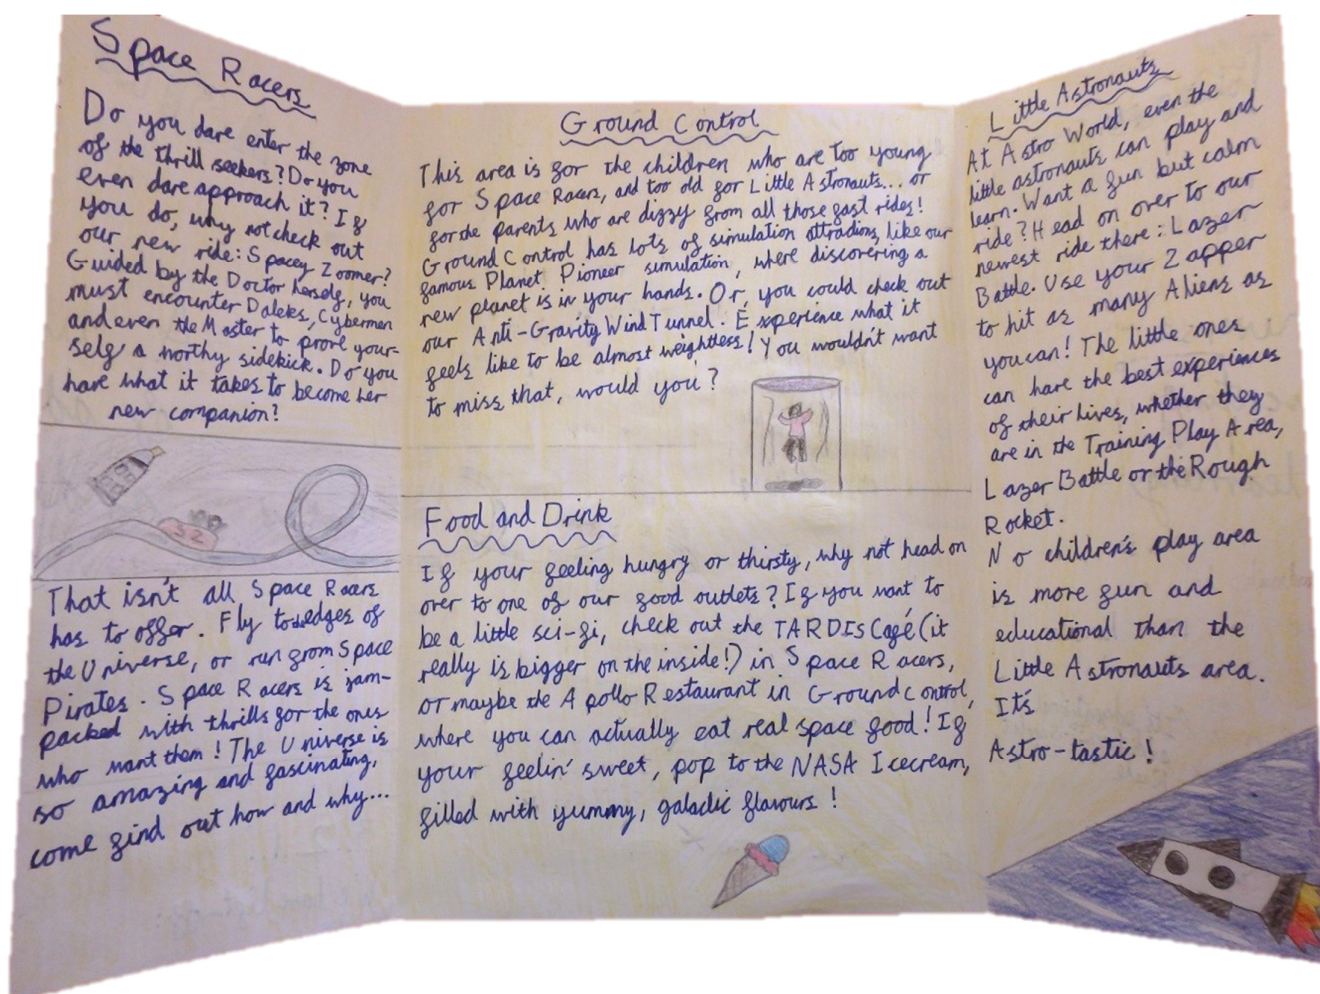 Space Racers
Do you dare enter the zone
of the thrill seekers? Do you
even dare approach it? If
you do, why not check out
our new ride: Spacey Zoomer?
Guided by the Doctor herself, you
must encounter Daleks, Cybermen
and even the Master to prove your-
self a worthy sidekick. Do you
have what it takes to become her
new companion?
That isn't all Space Racers
has to offer. Fly to the edges of
the Universe, or run from Space
Pirates. Space Racers is jam-
packed with thrills for the ones
who want them! The Universe is
so amazing and fascinating,
come find out how and why...
Ground Control
This area is for the children who are too young
for Space Racers, and too old for Little Astronauts... or
for the parents who are dizzy from all those fast rides!
Ground Control has lots of simulation attractions, like our
famous Planet Pioneer simulation, where discovering a
new planet is in your hands. Or, you could check out
our Anti-Gravity Wind Tunnel. Experience what it
feels like to be almost weightless! You wouldn't want
to miss that, would you?
Food and Drink
If your feeling hungry or thirsty, why not head on
over to one of our food outlets? If you want to
be a little sci-fi, check out the TARDIS Café (it
really is bigger on the inside!) in Space Racers,
or maybe the Apollo Restaurant in Ground Control,
where you can actually eat real space food! If
your feelin' sweet, pop to the NASA Icecream,
filled with yummy, galactic flavours!
Little Astronauts
At Astro World, even the
little astronauts can play and
learn. Want a fun but calm
ride? Head on over to our
newest ride there: Lazer
Battle. Use your Zapper
to hit as many Aliens as
you can! The little ones
can have the best experiences
of their lives, whether they
are in the Training Play Area,
Lazer Battle or the Rough
Rocket.
No children's play area
is more fun and
educational than the
Little Astronauts area.
It's
Astro-tastic!